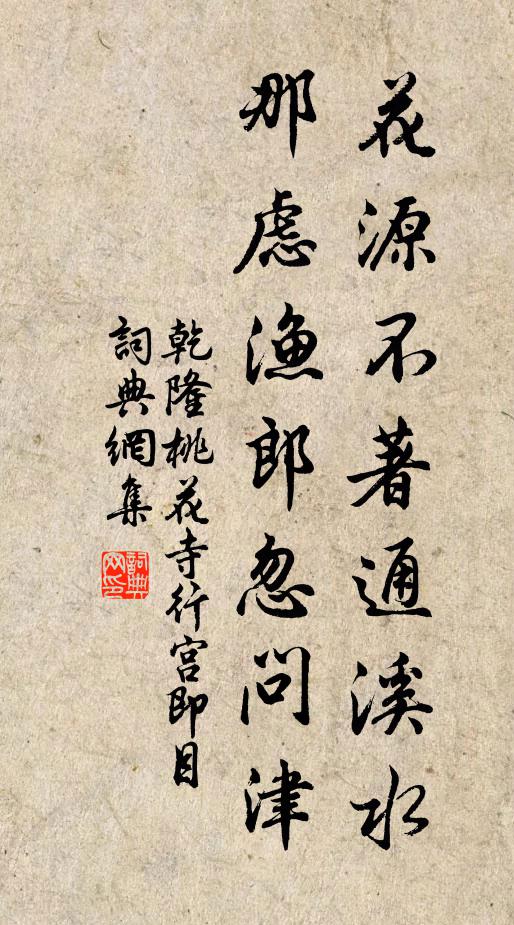 花源不著通溪水
那慮漁郎忽問津
乾隆桃花寺行宮即目
詞典網集
詞典网印